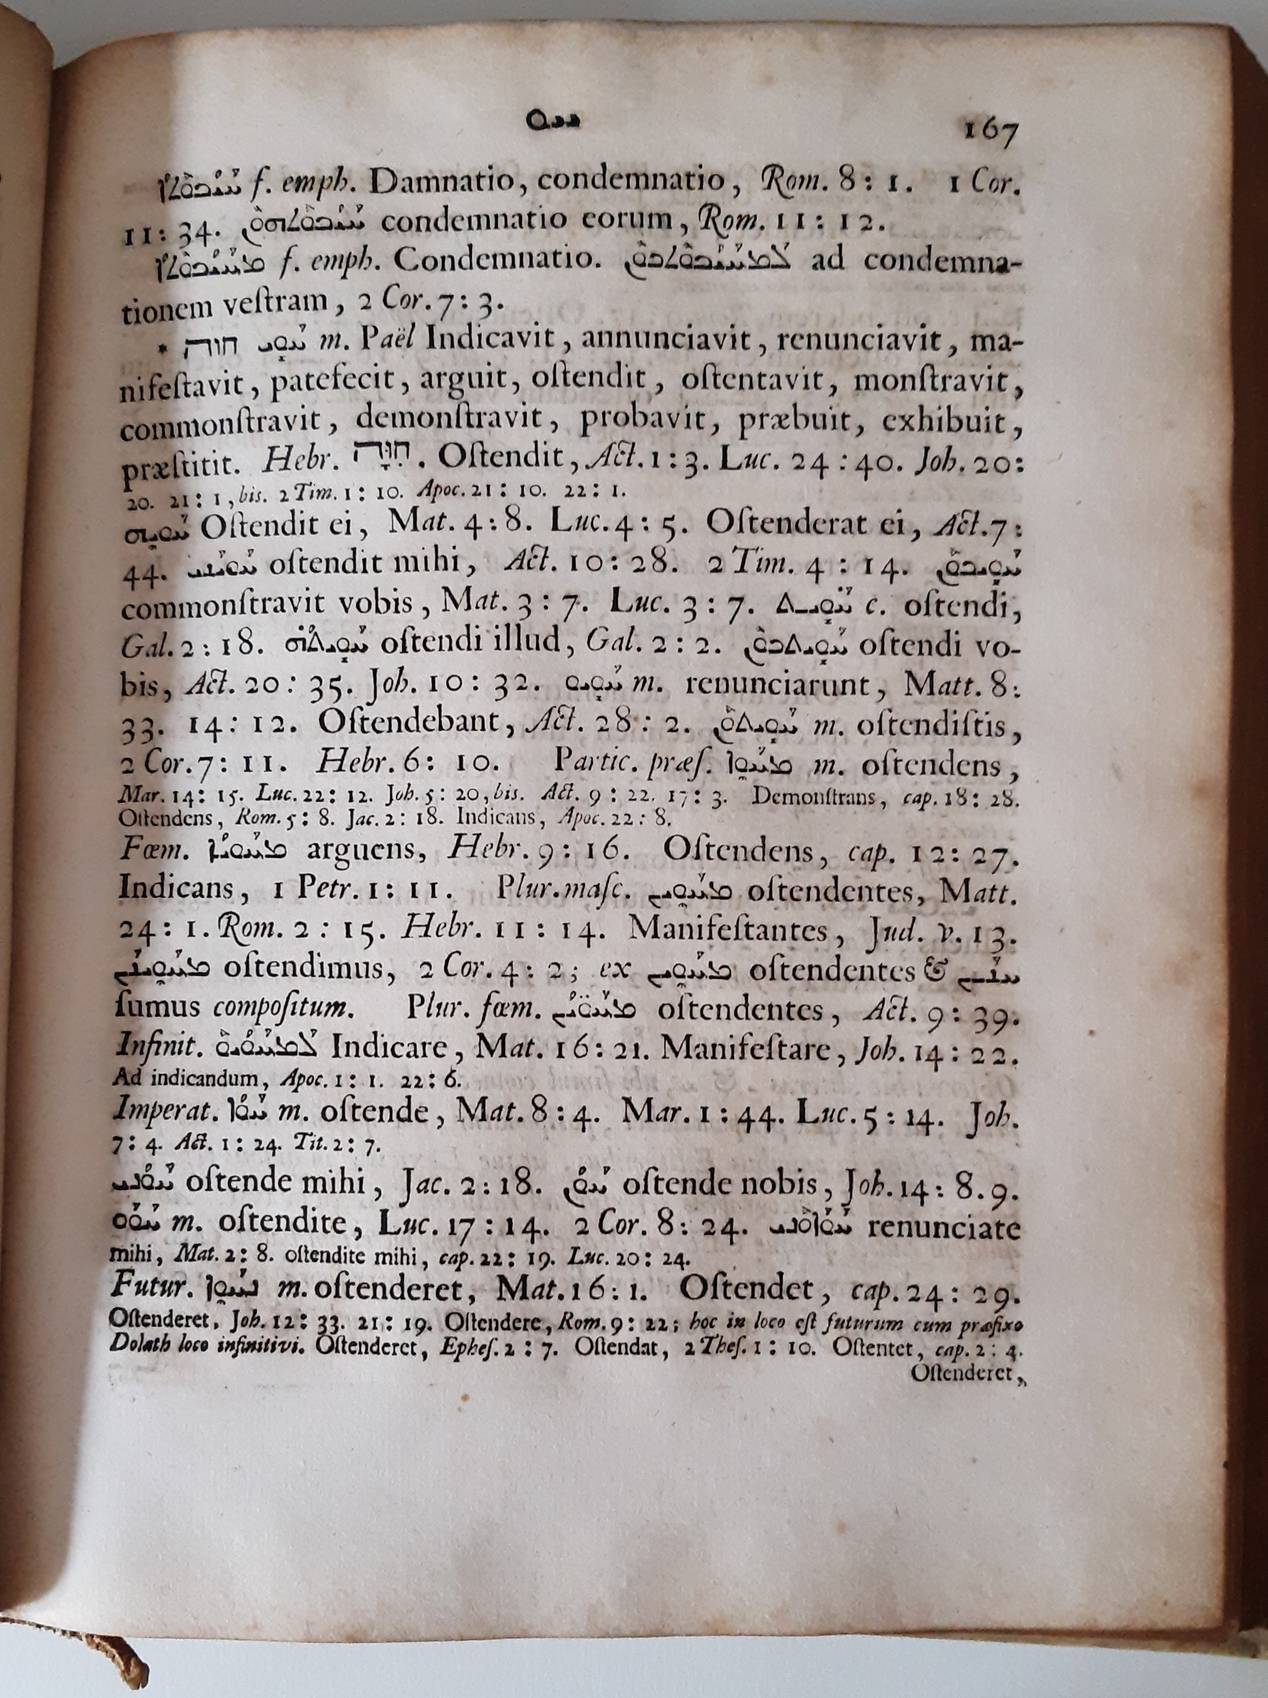 ܚܘ 167
ܚܝܒܘܬܐ f. emph. Damnatio, condemnatio, Rom. 8: 1. 1 Cor.
11: 34. ܚܝܒܘܬܗܘܢ condemnatio eorum, Rom. 11: 12.
ܡܚܝܒܘܬܐ f. emph. Condemnatio. ܠܡܚܝܒܘܬܟܘܢ ad condemna-
tionem veſtram, 2 Cor. 7: 3.
* חוה ܚܘܝ m. Paël Indicavit, annunciavit, renunciavit, ma-
nifeſtavit, patefecit, arguit, oſtendit, oſtentavit, monſtravit,
commonſtravit, demonſtravit, probavit, præbuit, exhibuit,
præſtitit. Hebr. חִוָּה. Oſtendit, Act. 1: 3. Luc. 24: 40. Joh. 20:
20. 21: 1, bis. 2 Tim. 1: 10. Apoc. 21: 10. 22: 1.
ܚܘܝܗ Oſtendit ei, Mat. 4: 8. Luc. 4: 5. Oſtenderat ei, Act. 7:
44. ܚܘܝܢܝ oſtendit mihi, Act. 10: 28. 2 Tim. 4: 14. ܚܘܝܟܘܢ
commonſtravit vobis, Mat. 3: 7. Luc. 3: 7. ܚܘܝܬ c. oſtendi,
Gal. 2: 18. ܚܘܝܬܗ oſtendi illud, Gal. 2: 2. ܚܘܝܬܟܘܢ oſtendi vo-
bis, Act. 20: 35. Joh. 10: 32. ܚܘܝܘ m. renunciarunt, Matt. 8:
33. 14: 12. Oſtendebant, Act. 28: 2. ܚܘܝܬܘܢ m. oſtendiſtis,
2 Cor. 7: 11. Hebr. 6: 10. Partic. præſ. ܡܚܘܐ m. oſtendens,
Mar. 14: 15. Luc. 22: 12. Joh. 5: 20, bis. Act. 9: 22. 17: 3. Demonſtrans, cap. 18: 28.
Oſtendens, Rom. 5: 8. Jac. 2: 18. Indicans, Apoc. 22: 8.
Fœm. ܡܚܘܝܐ arguens, Hebr. 9: 16. Oſtendens, cap. 12: 27.
Indicans, 1 Petr. 1: 11. Plur. maſc. ܡܚܘܝܢ oſtendentes, Matt.
24: 1. Rom. 2: 15. Hebr. 11: 14. Manifeſtantes, Jud. v. 13.
ܡܚܘܝܢܢ oſtendimus, 2 Cor. 4: 2; ex ܡܚܘܝܢ oſtendentes & ܚܢܢ
ſumus compoſitum. Plur. fœm. ܡܚܘܝܢ oſtendentes, Act. 9: 39.
Infinit. ܠܡܚܘܝܘ Indicare, Mat. 16: 21. Manifeſtare, Joh. 14: 22.
Ad indicandum, Apoc. 1: 1. 22: 6.
Imperat. ܚܘܐ m. oſtende, Mat. 8: 4. Mar. 1: 44. Luc. 5: 14. Joh.
7: 4. Act. 1: 24. Tit. 2: 7.
ܚܘܢܝ oſtende mihi, Jac. 2: 18. ܚܘܢ oſtende nobis, Joh. 14: 8. 9.
ܚܘܘ m. oſtendite, Luc. 17: 14. 2 Cor. 8: 24. ܚܘܐܘܢܝ renunciate
mihi, Mat. 2: 8. oſtendite mihi, cap. 22: 19. Luc. 20: 24.
Futur. ܢܚܘܐ m. oſtenderet, Mat. 16: 1. Oſtendet, cap. 24: 29.
Oſtenderet, Joh. 12: 33. 21: 19. Oſtendere, Rom. 9: 22; hoc in loco eſt futurum cum præfixo
Dolath loco infinitivi. Oſtenderet, Epheſ. 2: 7. Oſtendat, 2 Theſ. 1: 10. Oſtentet, cap. 2: 4.
Oſtenderet,